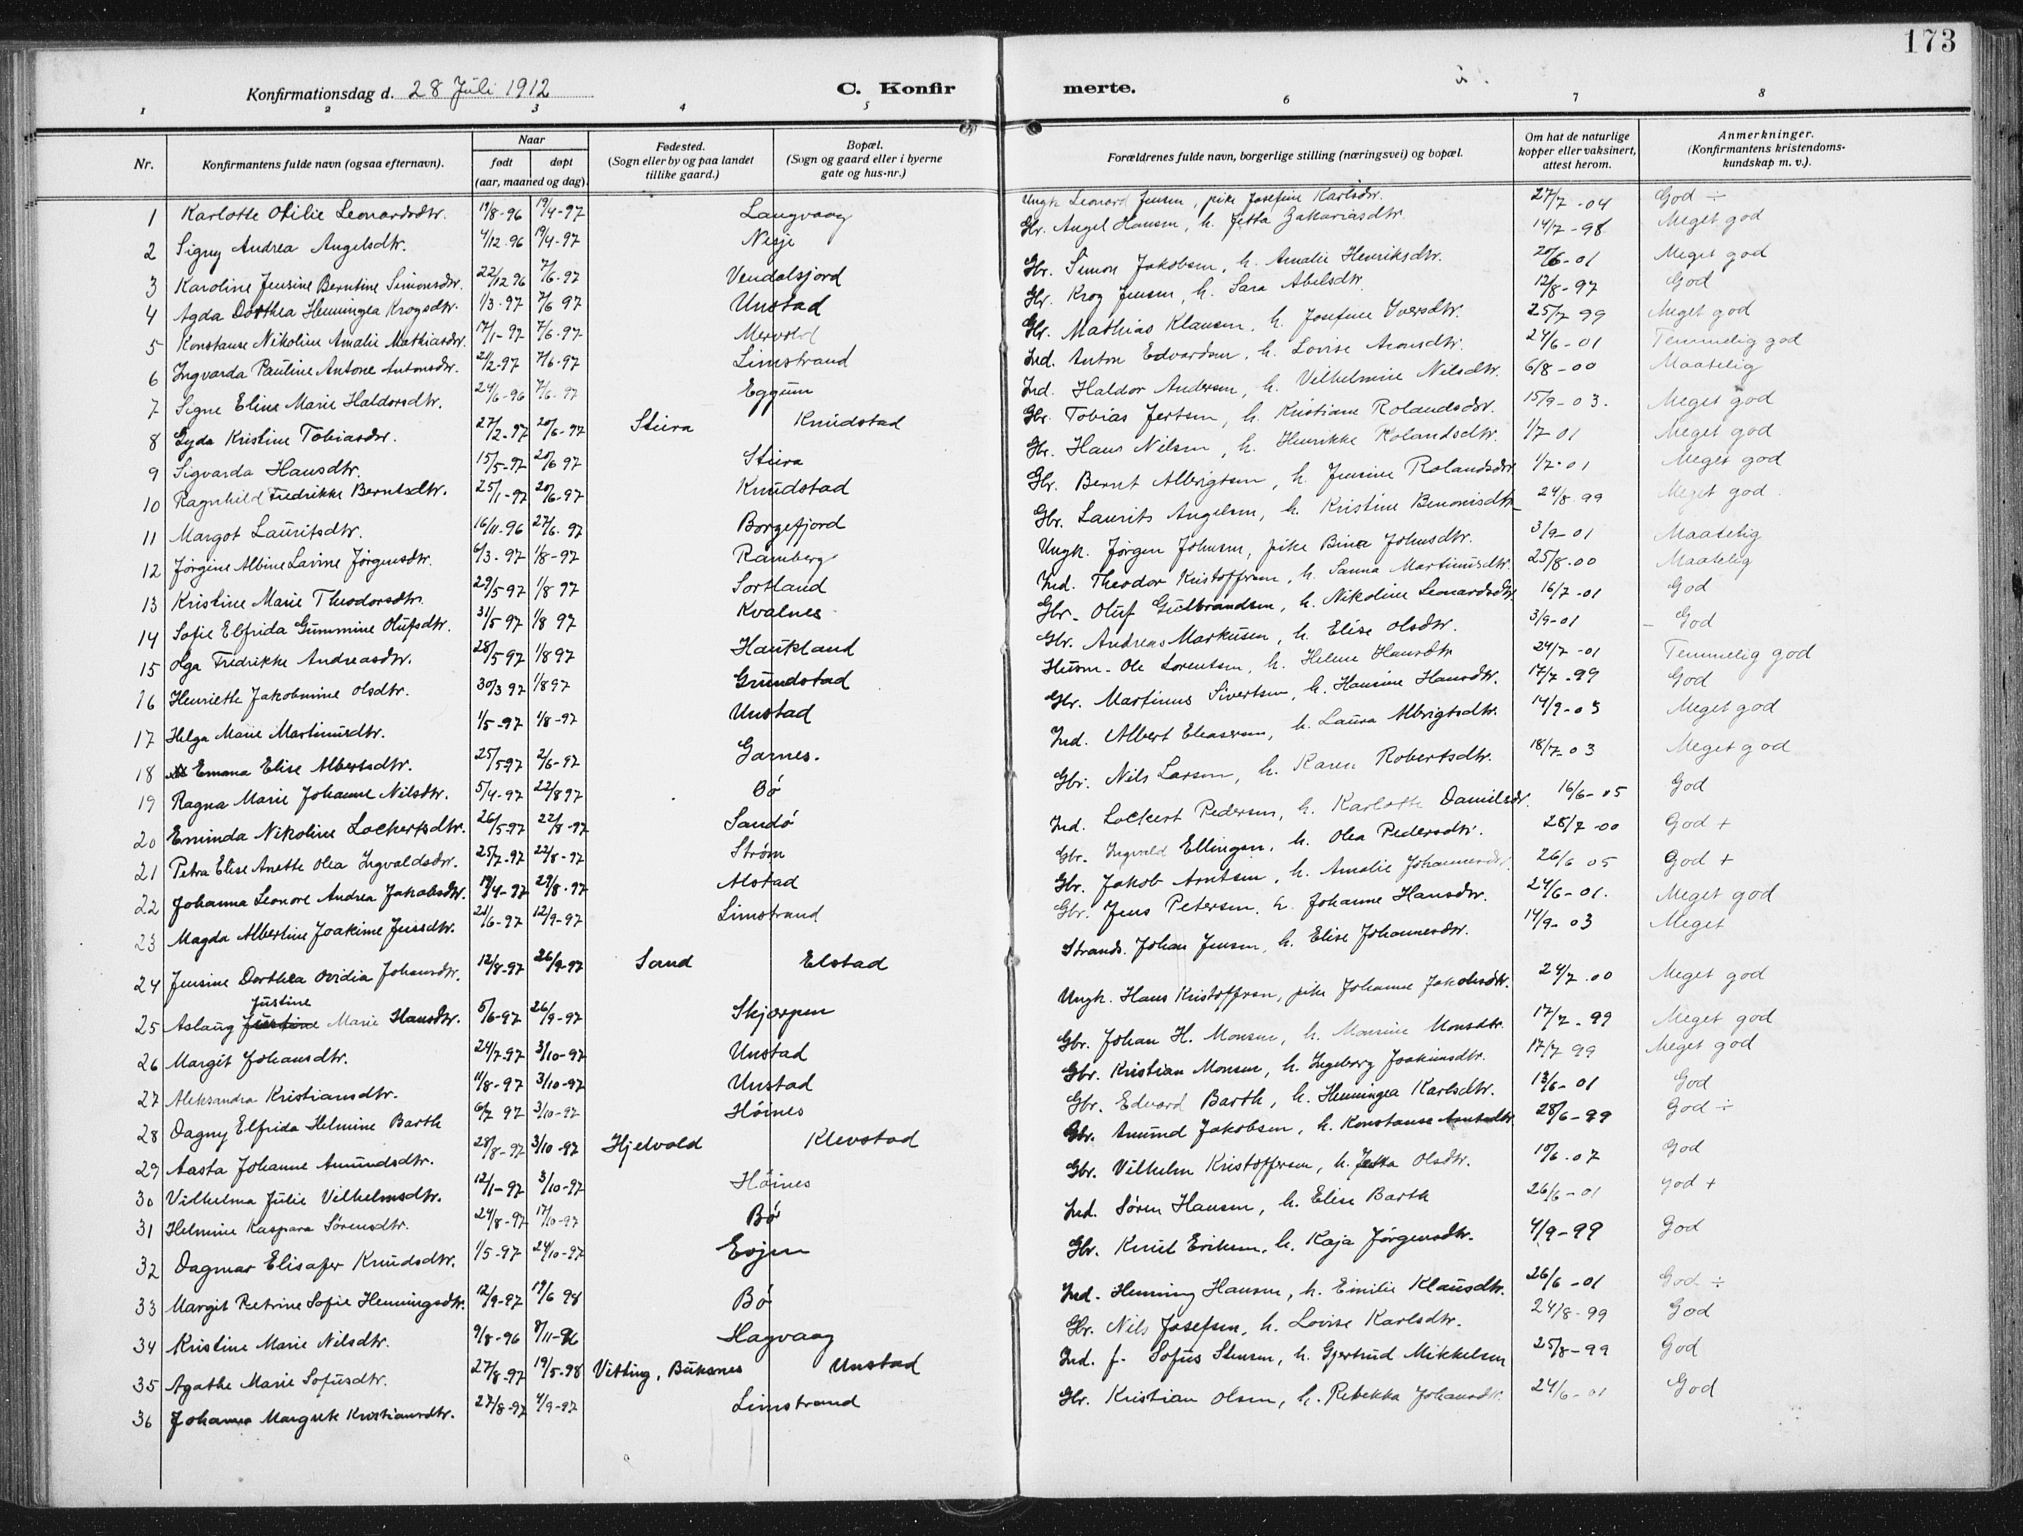 173
Konfirmationsdag d. 28 Juli 1912 C. Konfirmerte.
1 2 3 4 5 6 7 8
Nr. Konfirmantens fulde navn (ogsaa efternavn). Naar født døpt (aar, maaned og dag). Fødested. (Sogn eller by og paa landet tillike gaard.) Bopæl. (Sogn og gaard eller i byerne gate og hus-nr.) Forældrenes fulde navn, borgerlige stilling (næringsvei) og bopæl. Om hat de naturlige kopper eller vaksinert, attest herom. Anmerkninger. (Konfirmantens kristendomskundskap m. v.).
1 Karlotte Otilie Leonardsdtr. 19/8-96 19/4-97 Langvaag Ungk. Leonard Jensen, pike Josefine Karlsdtr. 27/7-04 God ÷
2 Signy Andrea Angelsdtr. 4/12-96 19/4-97 Nesje Gbr. Angel Hansen, h. Jetta Zakariasdtr. 14/7-98 Meget god
3 Karoline Jensine Berntine Simonsdtr. 22/12 96 7/6-97 Vendalsjord Gbr. Simon Jakobsen, h. Amalie Henriksdtr. 20/6-01 Meget god
4 Agda Dorthea Henningea Krogsdtr. 1/3-97 7/6 97 Unstad Gbr. Krog Jensen, h. Sara Abelsdtr. 12/8-97 God
5 Konstanse Nikoline Amalie Mathiasdtr. 17/1-97 7/6-97 Mervold Gbr. Mathias Klausen, h. Josefine Iversdtr. 25/7 99 Meget god
6 Ingvarda Pauline Antone Antonsdtr. 2/2-97 7/6-97 Limstrand Ind. Anton Edvardsen, h. Lovise Aronsdtr. 24/6-01 Temmelig god
7 Signe Eline Marie Haldorsdtr. 24/6-96 7/6-97 Eggum Ind. Haldor Andersen, h. Vilhelmine Nilsdtr. 6/8-00 Maatelig
8 Gyda Kristine Tobiasdtr. 27/2-97 20/6-97 Stiera Knudstad Gbr. Tobias Jertsen, h. Kristiane Rolandsdtr. 15/9-03. Meget god
9 Sigvarda Hansdtr. 15/5-97 20/6 97 Stiera Gbr. Hans Nilsen, h. Henrikke Rolandsdtr. 1/7-01 Meget god
10 Ragnhild Fredrikke Berntsdtr. 25/1-97 20/6-97 Knudstad Gbr. Bernt Albrigtsen, h. Jensine Rolandsdtr 1/7-01 Meget god
11 Margot Lauritsdtr. 16/11-96 27/6-97 Borgefjord Gbr. Laurits Angelsen, h. Kristine Benonisdtr 24/8 99 Meget god
12 Jørgine Albine Lavine Jørgensdtr. 6/3-97 1/8-97 Ramberg Ungk. Jørgen Johnsen, pike Bina Johnsdtr. 3/9-01 Maatelig
13 Kristine Marie Theodorsdtr. 29/5 97 1/8 97 Sortland Ind. Theodor Kristoffersen, h. Sanna Martinusdtr. 25/8-00 Maatelig
14 Sofie Elfrida Gunmine Olufsdtr. 31/5 97 1/8 97 Kvalnes Gbr. Oluf Gulbrandsen, h. Nikoline Leonardsdtr 16/7-01 God
15 Olga Fredrikke Andreasdtr. 28/5 97 1/8 97 Haukland Gbr. Andreas Markusen, h. Elise Olsdtr. 3/9-01 God
16 Henriette Jakobmine Olsdtr. 30/3 97 1/8 97 Grundstad Husm. Ole Lorentsen, h. Helene Hansdtr 24/7-01 Temmelig god
17 Helga Marie Martinusdtr. 1/5-97 1/8-97 Unstad Gbr. Martinus Sivertsen, h. Hansine Hansdtr. 17/7-99 God
18 Emana Elise Albertsdtr. 25/5 97 2/6-97 Garnes. Ind. Albert Eleasersen, h. Laura Albrigtsdtr. 14/9-03 Meget god
19 Ragna Marie Johanne Nilsdtr. 5/4-97 22/8 97 Bø Gbr. Nils Larsen, h. Karen Robertsdtr. 18/7-03 Meget god
20 Eminda Nikoline Lockertsdtr. 26/5-97 22/8-97 Sandø Ind. Lockert Pedersen, h. Karlotte Danielsdr. 16/6-05 God
21 Petra Elise Anette Olea Ingvaldsdtr. 25/7-97 22/8-97 Strøm Gbr. Ingvald Ellingsen, h. Olea Pedersdtr. 28/7-00 God +
22 Johanna Leonore Andrea Jakobsdtr. 19/4-97 29/8-97 Alstad Gbr. Jakob Arntsen, h. Amalie Johannesdtr. 26/6 05 God +
23 Magda Albertine Joakime Jensdtr. 21/6-97 12/9-97 Limstrand Gbr. Jens Petersen, h. Johanne Hansdtr. 24/6-01. Meget god
24 Jensine Dorthea Ovidia Johansdtr. 12/8-97 26/9-97 Sand Elstad Strands. Johan Jensen, h. Elise Johannesdtr. 14/9-03 Meget
25 Aslaug Justine Marie Hansdtr. 5/6-97 26/9-97 Skjerpen Ungk. Hans Kristoffersen, pike Johanne Jakobsdtr. 24/7-00 Meget god
26 Margit Johansdtr. 24/7-97 3/10-97 Unstad Gbr. Johan H. Monsen, h. Monsine Monsdtr. 17/7-99 Meget god
27 Aleksandra Kristiansdtr. 11/8-97 3/10-97 Unstad Gbr. Kristian Monsen, h. Ingeborg Joakimsdtr. 17/7 99 Meget god
28 Dagny Elfrida Helmine Barth 6/7 97 3/10-97 Høines Gbr. Edvard Barth, h. Henningea Karlsdtr. 13/6-01 God
29 Aasta Johanne Amundsdtr. 28/8-97 3/10-97 Hjelvold Klevstad Gbr. Amund Jakobsen, h. Konstanse Arntsdtr. 28/6-99 God ÷
30 Vilhelma Julie Vilhelmsdtr. 12/1-97 3/10-97 Høines Gbr. Vilhelm Kristoffersen, h. Jetta Olsdtr. 10/6-07 God
31 Helmine Kaspara Sørensdtr. 24/8-97 17/10-97 Bø Ind. Søren Hansen, h. Elise Barth 26/6-01 God +
32 Dagmar Elisafer Knudsdtr. 1/5-97 24/10-97 Evjen Gbr. Knut Eriksen, h. Kaja Jørgensdtr. 4/9-99 God
33 Margit Petrine Sofie Henningsdtr. 12/9-97 19/6 98 Bø Ind. Henning Hansen, h. Emilie Klausdtr. 26/6-01 God ÷
34 Kristine Marie Nilsdtr. 9/8-96 8/11-96 Hagvaag Gbr. Nils Josefsen, h. Lovise Karlsdtr. 24/8-99 God
35 Agathe Marie Sofusdtr. 27/8-97 19/5-98 Vitting, Buksnes Unstad Ind. f. Sofus Stensen, h. Gjertrud Mikkelsen 25/8-99 God
36 Johanna Margrete Kristiansdtr. 27/8-97 4/9-97 Limstrand Gbr. Kristian Olsen, h. Rebekka Johansdtr. 24/6-01 God